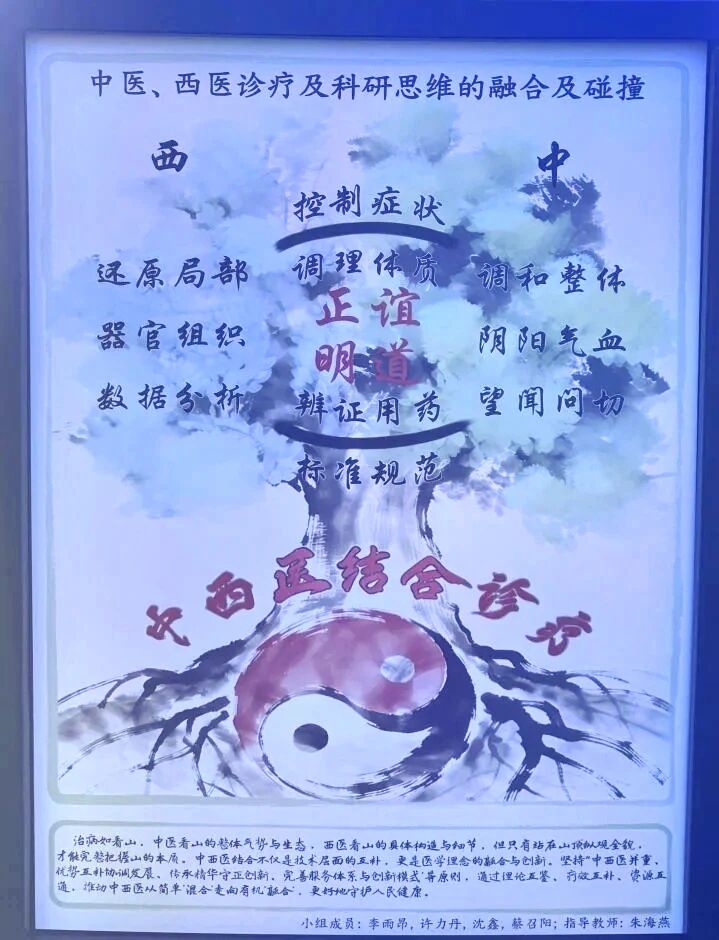 中医、西医诊疗及科研思维的融合及碰撞
西
中
控制症状
还原局部
调理体质
调和整体
正谊
器官组织
阴阳气血
明道
数据分析
辨证用药
望闻问切
标准规范
中西医结合诊疗
治病如看山，中医看山的整体气势与生态，西医看山的具体构造与细节，但只有站在山顶纵观全貌，
才能完整把握山的本质。中西医结合不仅是技术层面的互补，更是医学理念的融合与创新。坚持“中西医并重、
优势互补协调发展、传承精华守正创新、完善服务体系与创新模式”等原则，通过理论互鉴、疗效互补、资源互
通，推动中西医从简单‘混合’走向有机‘融合’，更好地守护人民健康。
小组成员：李雨昂，许力丹，沈鑫，蔡召阳；指导教师：朱海燕